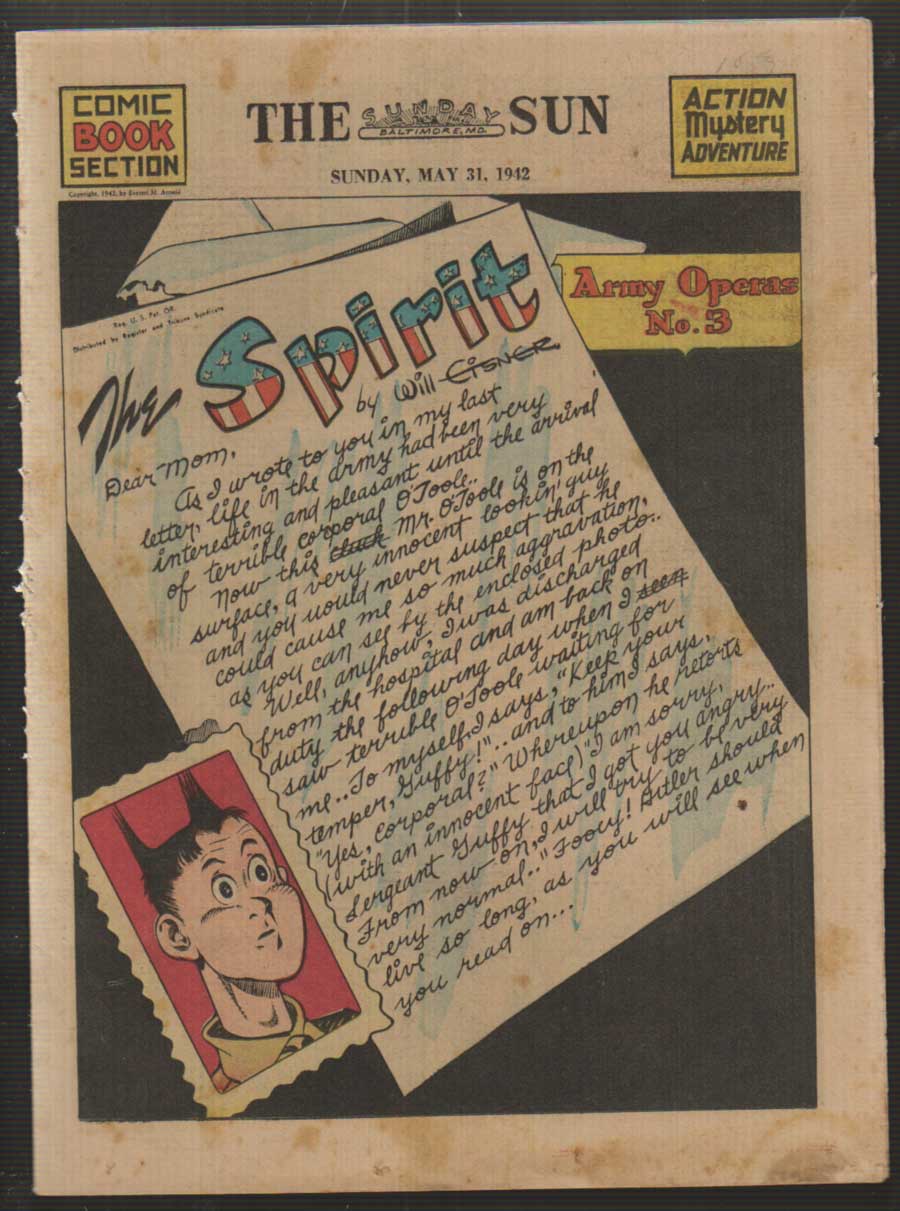 COMIC
BOOK
SECTION
Copyright, 1942, by Everett M. Arnold
THE SUNDAY SUN
BALTIMORE, MD.
SUNDAY, MAY 31, 1942
ACTION
Mystery
ADVENTURE
Reg. U. S. Pat. Off.
Distributed by Register and Tribune Syndicate
The Spirit
by Will Eisner
Army Operas
No. 3
Dear Mom,
As I wrote to you in my last
letter, life in the army had been very
interesting and pleasant until the arrival
of terrible corporal O'Toole..
Now this cluck Mr. O'Toole is on the
surface, a very innocent lookin' guy
and you would never suspect that he
could cause me so much aggravation,
as you can see by the enclosed photo..
Well, anyhow, I was discharged
from the hospital and am back on
duty the following day when I seen
saw terrible O'Toole waiting for
me.. To myself, I says, "Keep your
temper, Guffy!".. and to him I says,
"Yes, Corporal?" Whereupon he retorts
(with an innocent face) "I am sorry,
Sergeant Guffy that I got you angry...
From now on, I will try to be very
very normal.." Fooey! Hitler should
live so long, as you will see when
you read on...